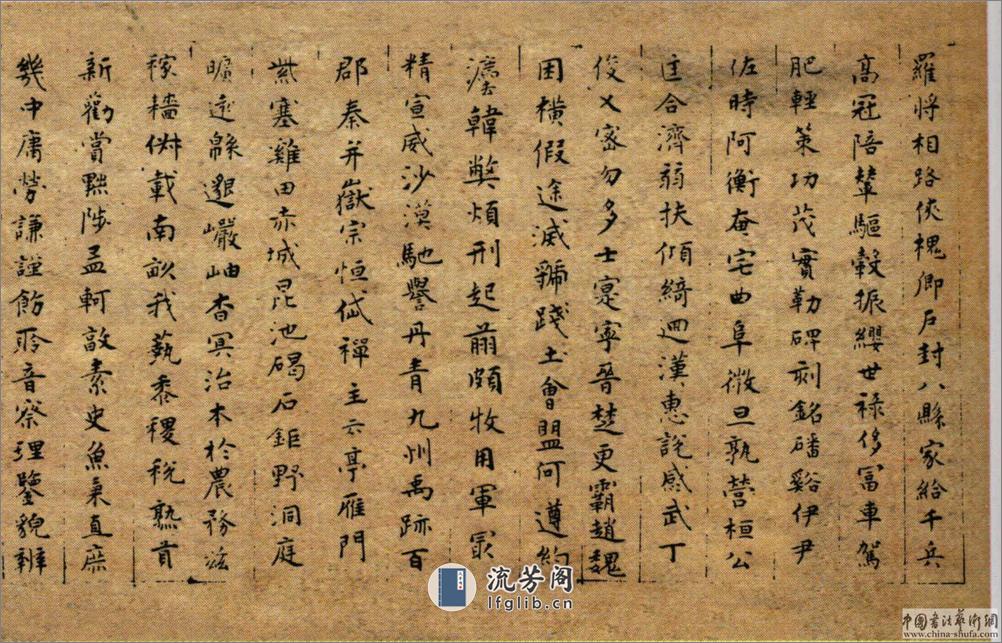 羅將相路俠槐卿戶封八縣家給千兵
高冠陪輦驅轂振纓世祿侈富車駕
肥輕策功茂實勒碑刻銘磻谿伊尹
佐時阿衡奄宅曲阜微旦孰營桓公
匡合濟弱扶傾綺迴漢惠說感武丁
俊乂密勿多士寔寧晉楚更霸趙魏
困橫假途滅虢踐土會盟何遵約
灋韓弊煩刑起翦頗牧用軍最
精宣威沙漠馳譽丹青九州禹跡百
郡秦并嶽宗恒岱禪主云亭雁門
紫塞雞田赤城昆池碣石鉅野洞庭
曠遠緜邈巖岫杳冥治本於農務茲
稼穡俶載南畝我藝黍稷稅熟貢
新勸賞黜陟孟軻敦素史魚秉直庶
幾中庸勞謙謹飭聆音察理鑒貌辨
流芳阁
lfglib.cn
中国书法艺术網
www.china-shufa.com